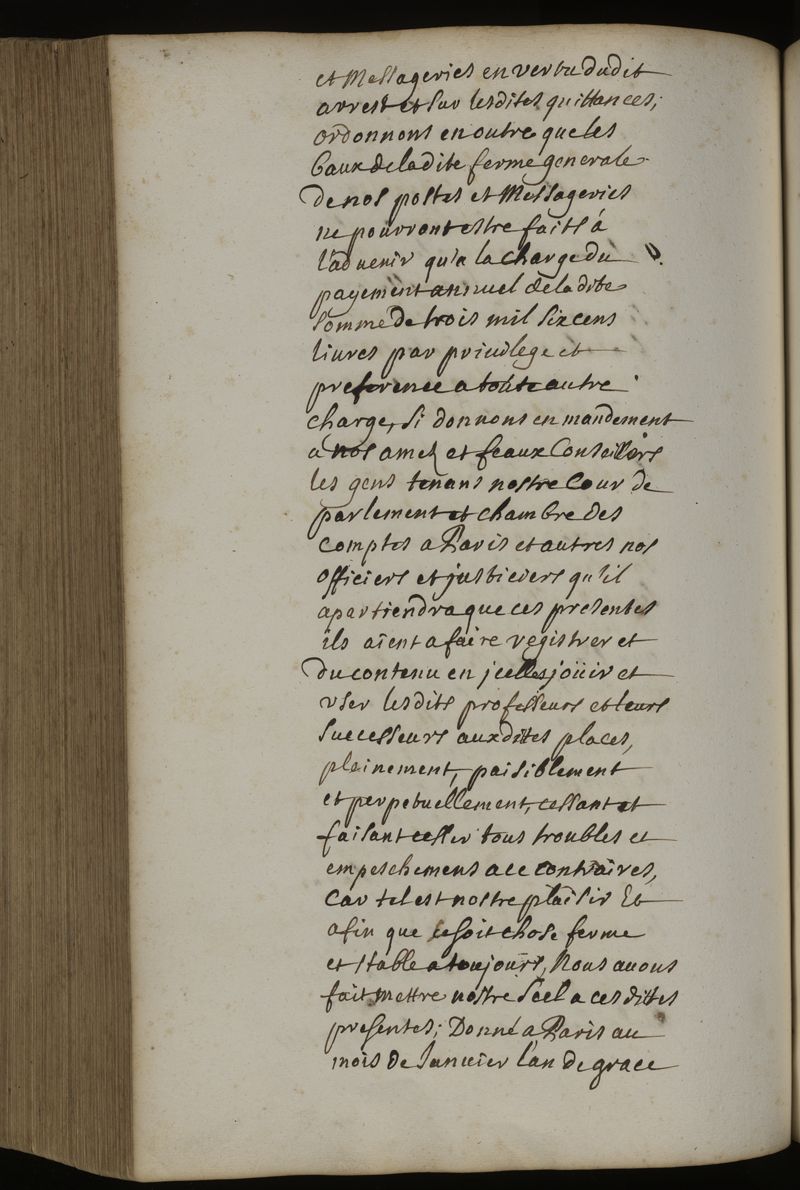 et Messageries en vertu dudit
arrest et sur lesdites quittances;
ordonnons en outre que les
baux de ladite ferme generale
de nos postes et Messageries
ne pourront estre faits á
l'aduenir qu'a la charge du
payement annuel de la dite
somme de trois mil six cens
liures par priuilege et
preference a toute autre
charge, Si donnons en mandement
a nos amez et feaux Conseillers
les gens tenans nostre Cour de
parlement et chambre des
comptes a Paris et autres nos
officiers et justiciers qu'il
apartiendra que ces presentes
ils aïent a faire registrer et
du contenu en jcelles joüir et
vser lesdits professeurs et leurs
successeurs auxdites places,
pleinement, paisiblement
et perpetuellement, cessant et
faisant cesser tous troubles et
empeschemens a ce contraires,
Car tel est nostre plaisir Et
afin que ce soit chose ferme
et stable a toujours, Nous auons
fait mettre nostre Scel a ces dittes
presentes; Donné a Paris au
mois de Januier l'an de grace